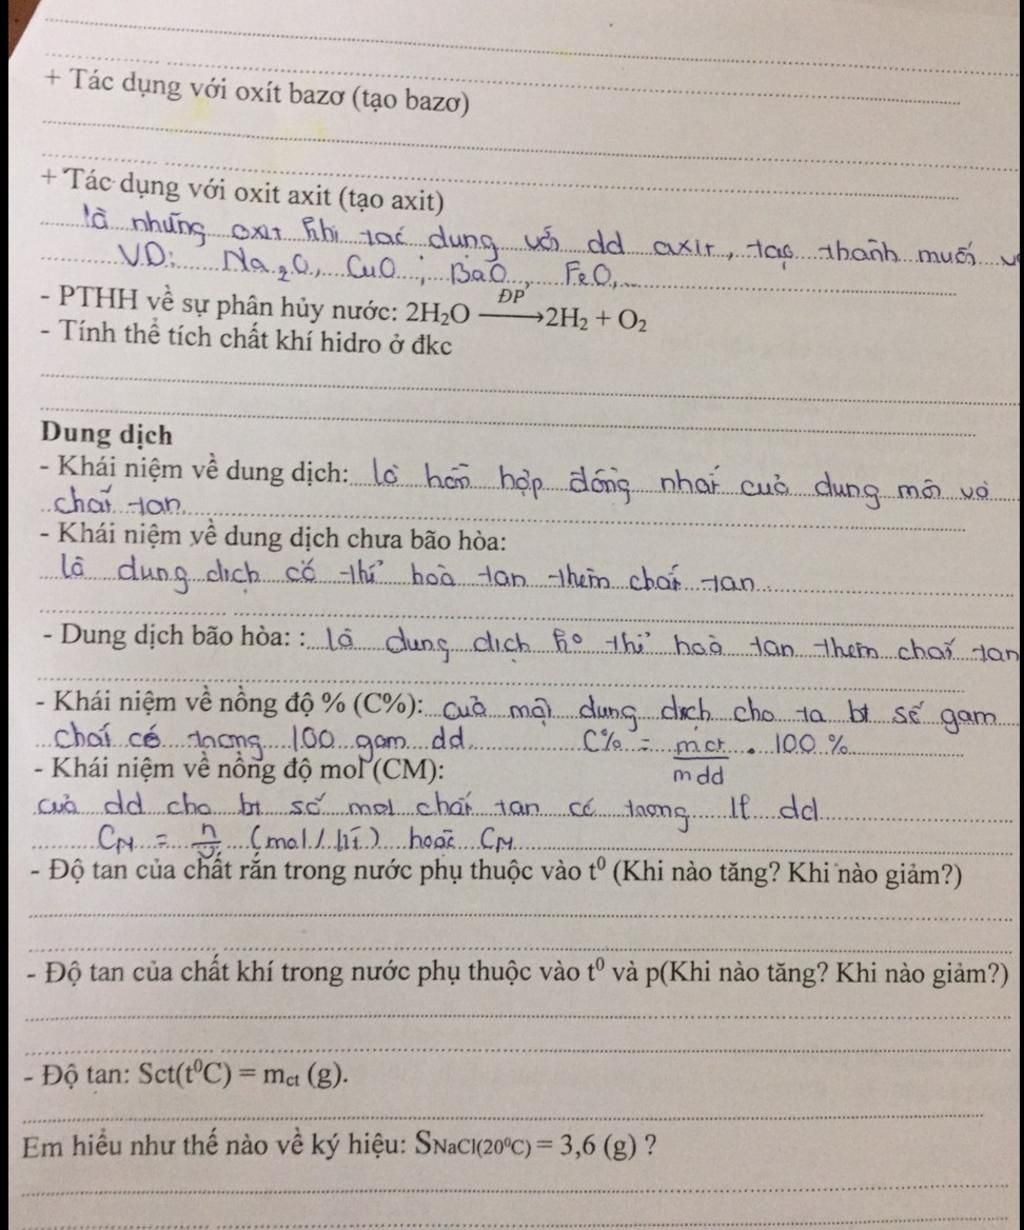 + Tác dụng với oxít bazơ (tạo bazơ)
+ Tác dụng với oxit axit (tạo axit)
là những oxit khi tác dụng với dd axit, tạo thành muối
VD: Na₂O, CuO; BaO, FeO,
- PTHH về sự phân hủy nước: 2H₂O —ĐP→ 2H₂ + O₂
- Tính thể tích chất khí hidro ở đkc
Dung dịch
- Khái niệm về dung dịch: là hỗn hợp đồng nhất của dung môi và
chất tan.
- Khái niệm về dung dịch chưa bão hòa:
là dung dịch có thể hoà tan thêm chất tan
- Dung dịch bão hòa: : là dung dịch k⁰ thể hoà tan thêm chất tan
- Khái niệm về nồng độ % (C%): của một dung dịch cho ta bt số gam
chất có trong 100 gam dd. C% = mct/mdd . 100 %
- Khái niệm về nồng độ mol (CM):
của dd cho bt số mol chất tan có trong 1l dd
CM = n/V (mol/lít) hoặc CM
- Độ tan của chất rắn trong nước phụ thuộc vào t⁰ (Khi nào tăng? Khi nào giảm?)
- Độ tan của chất khí trong nước phụ thuộc vào t⁰ và p(Khi nào tăng? Khi nào giảm?)
- Độ tan: Sct(t⁰C) = mct (g).
Em hiểu như thế nào về ký hiệu: SNaCl(20⁰C) = 3,6 (g) ?